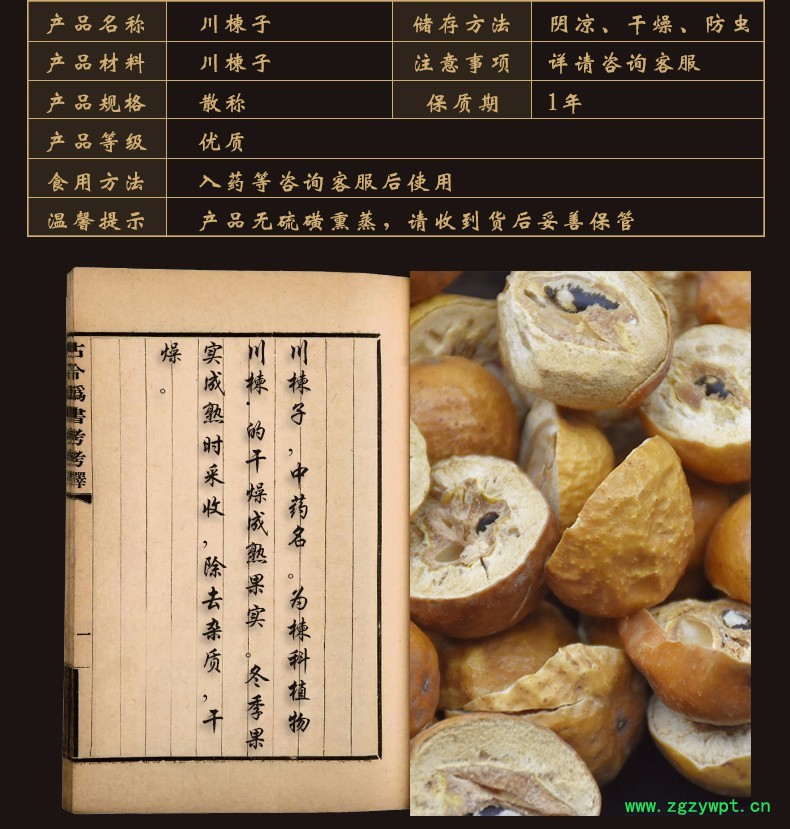 产品名称 川楝子 储存方法 阴凉、干燥、防虫
产品材料 川楝子 注意事项 详请咨询客服
产品规格 散称 保质期 1年
产品等级 优质
食用方法 入药等咨询客服后使用
温馨提示 产品无硫磺熏蒸，请收到货后妥善保管
川楝子，中药名。为楝科植物
川楝.的干燥成熟果实。冬季果
实成熟时采收，除去杂质，干
燥。
古今伪书考考释
一
www.zgzywpt.cn